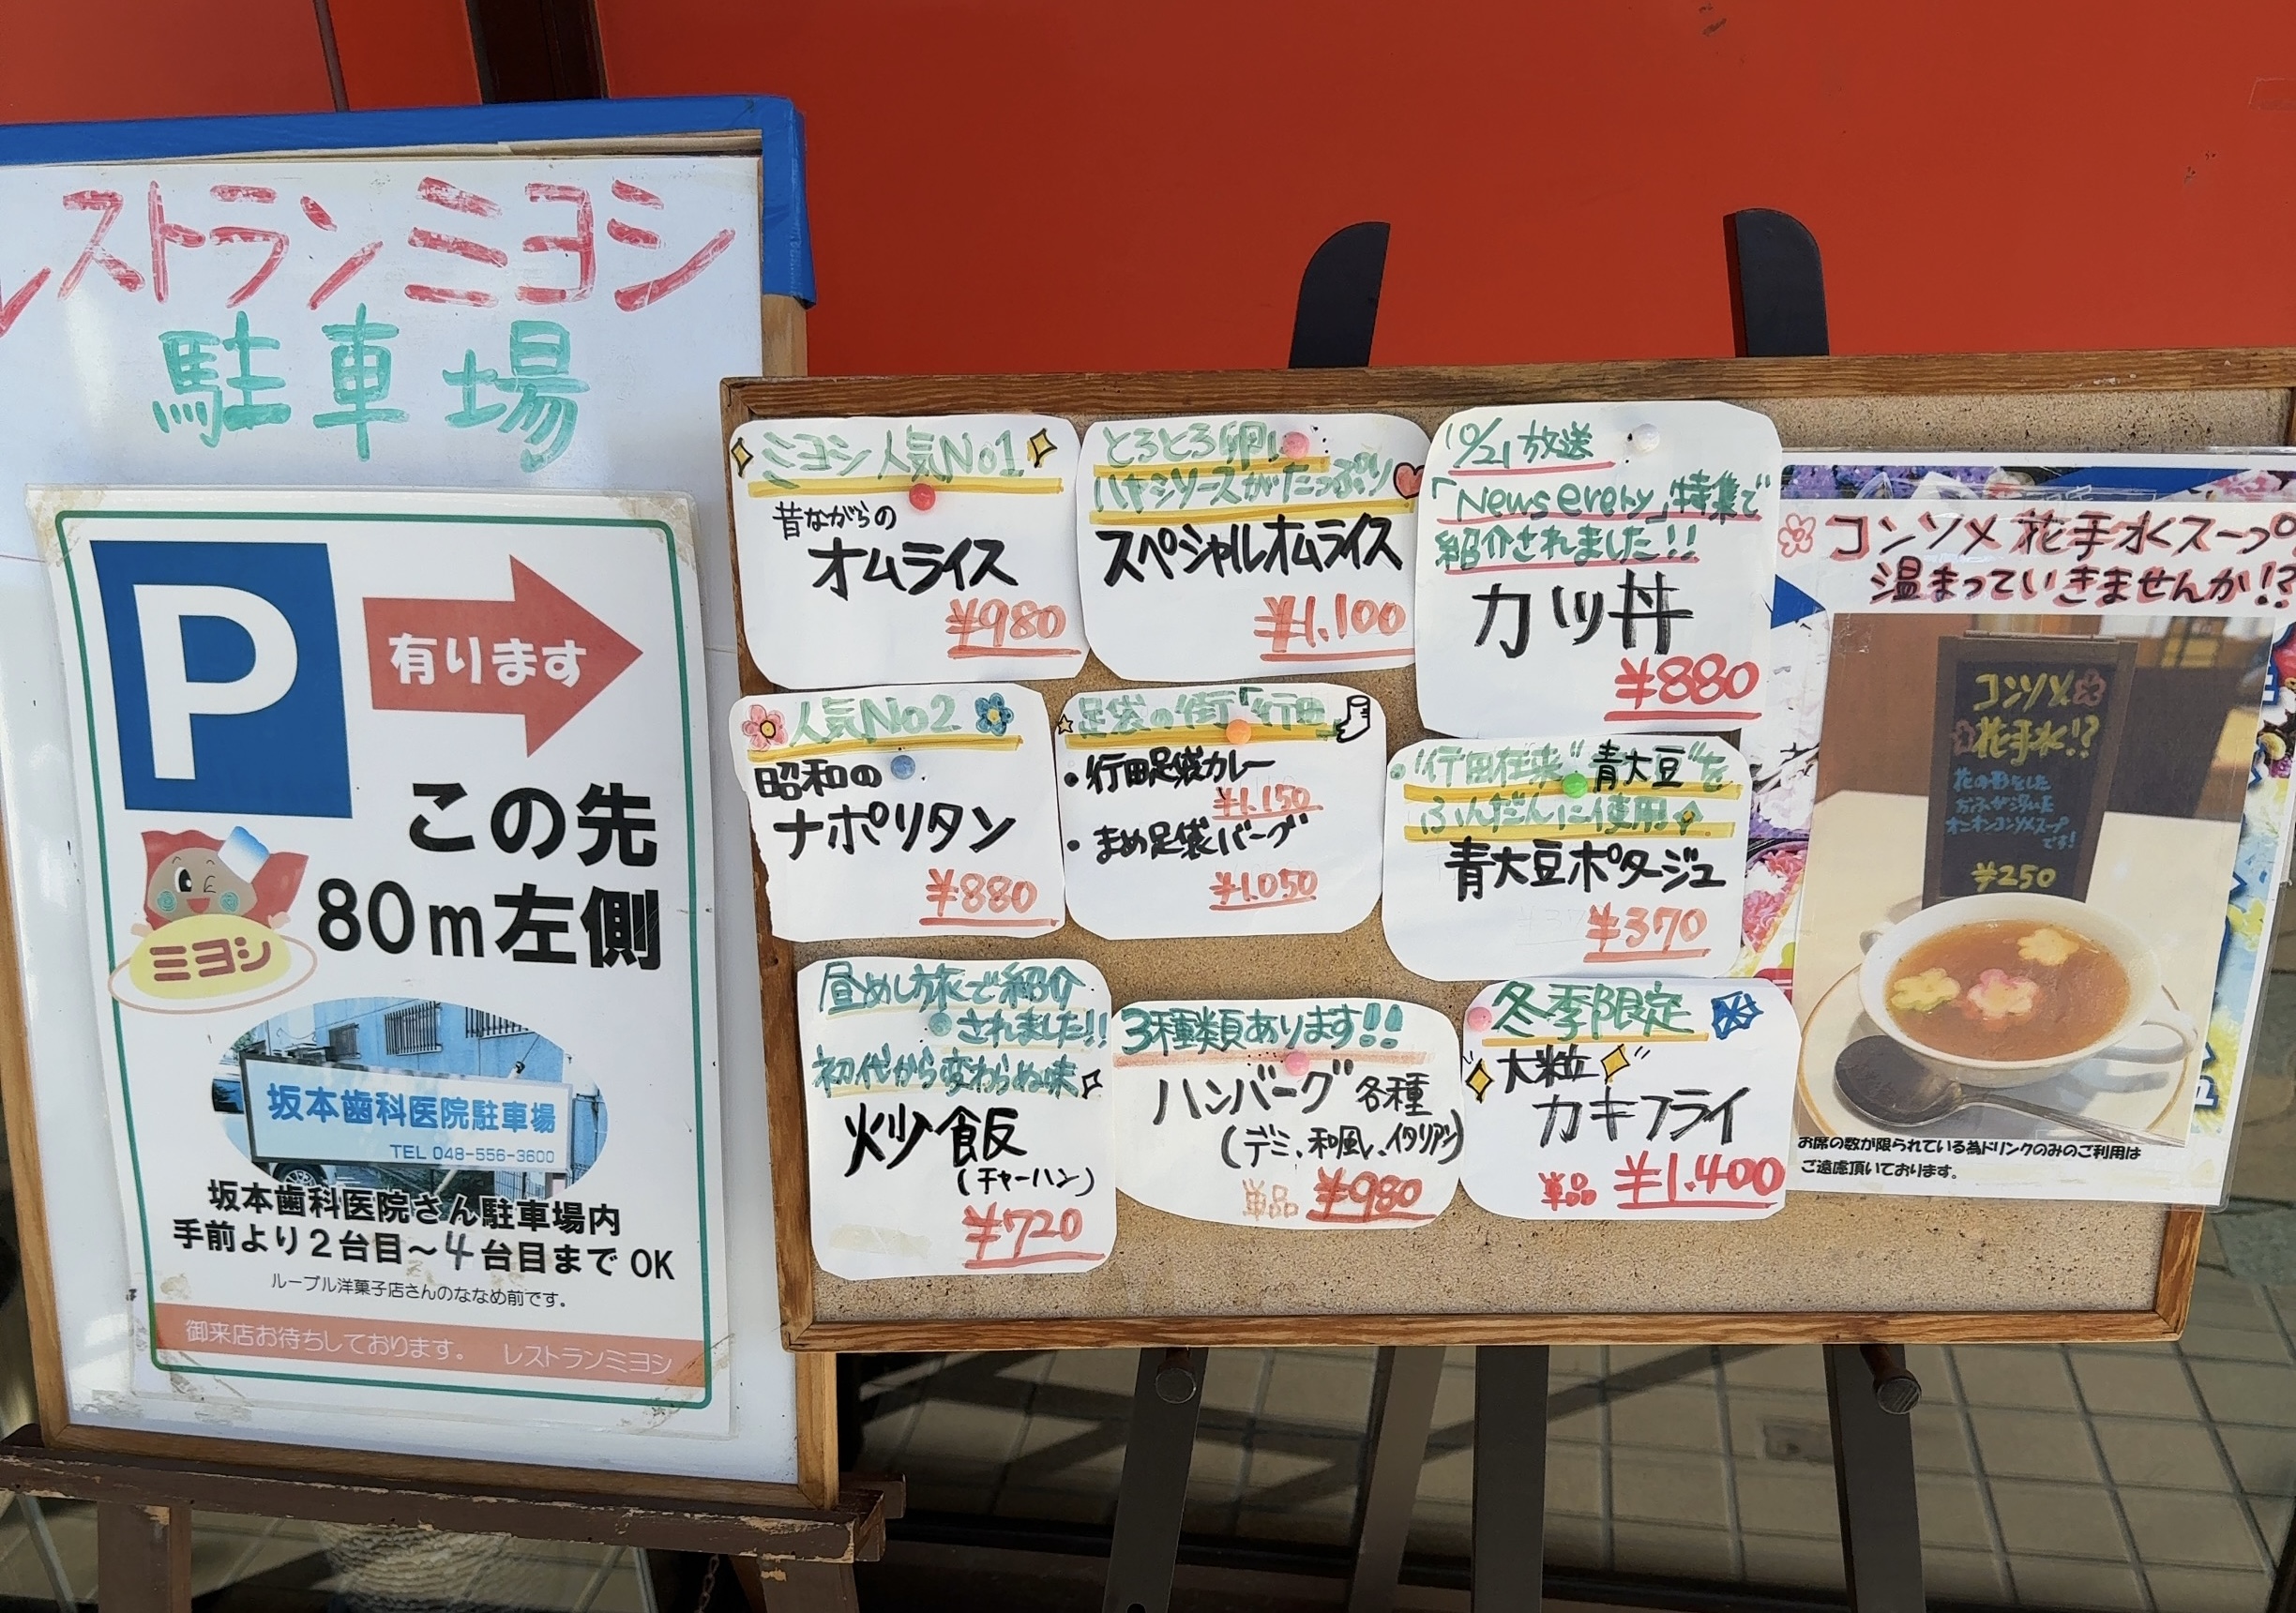 レストランミヨシ
駐車場
P
有ります
この先
80m左側
ミヨシ
坂本歯科医院駐車場
TEL 048-556-3600
坂本歯科医院さん駐車場内
手前より2台目～4台目までOK
ルーブル洋菓子店さんのななめ前です。
御来店お待ちしております。 レストランミヨシ
ミヨシ人気No1
昔ながらの
オムライス
¥980
とろとろ卵に
ハヤシソースがたっぷり
スペシャルオムライス
¥1,100
10/21 放送
「News every」特集で
紹介されました!!
カツ丼
¥880
人気No2
昭和の
ナポリタン
¥880
足袋の街「行田」
・行田足袋カレー
¥1,150
・まめ足袋バーグ
¥1,050
・行田在来"青大豆"を
ふんだんに使用
青大豆ポタージュ
¥370
昼めし旅で紹介
されました!!
初代から変わらぬ味
炒飯
(チャーハン)
¥720
3種類あります!!
ハンバーグ各種
(デミ、和風、イタリアン)
単品 ¥980
冬季限定
大粒
カキフライ
単品 ¥1,400
コンソメ花手水スープ
温まっていきませんか!?
コンソメ
花手水!?
花の形をした
お麩が浮いた
オニオンコンソメスープ
です!
¥250
お席の数が限られている為ドリンクのみのご利用は
ご遠慮頂いております。